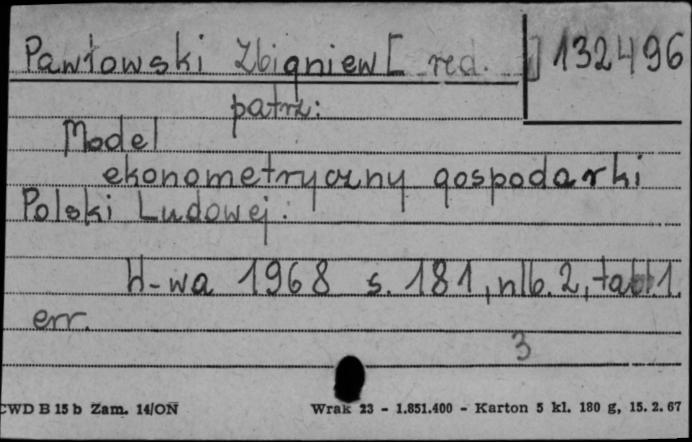 Pawłowski Zbigniew [red.] 132496
patrz:
Model
ekonometryczny gospodarki
Polski Ludowej.
W-wa 1968 s. 181, nlb. 2, tabl. 1.
err.
3
CWD B 15 b Zam. 14/ON Wrak 23 - 1.851.400 - Karton 5 kl. 180 g, 15. 2. 67